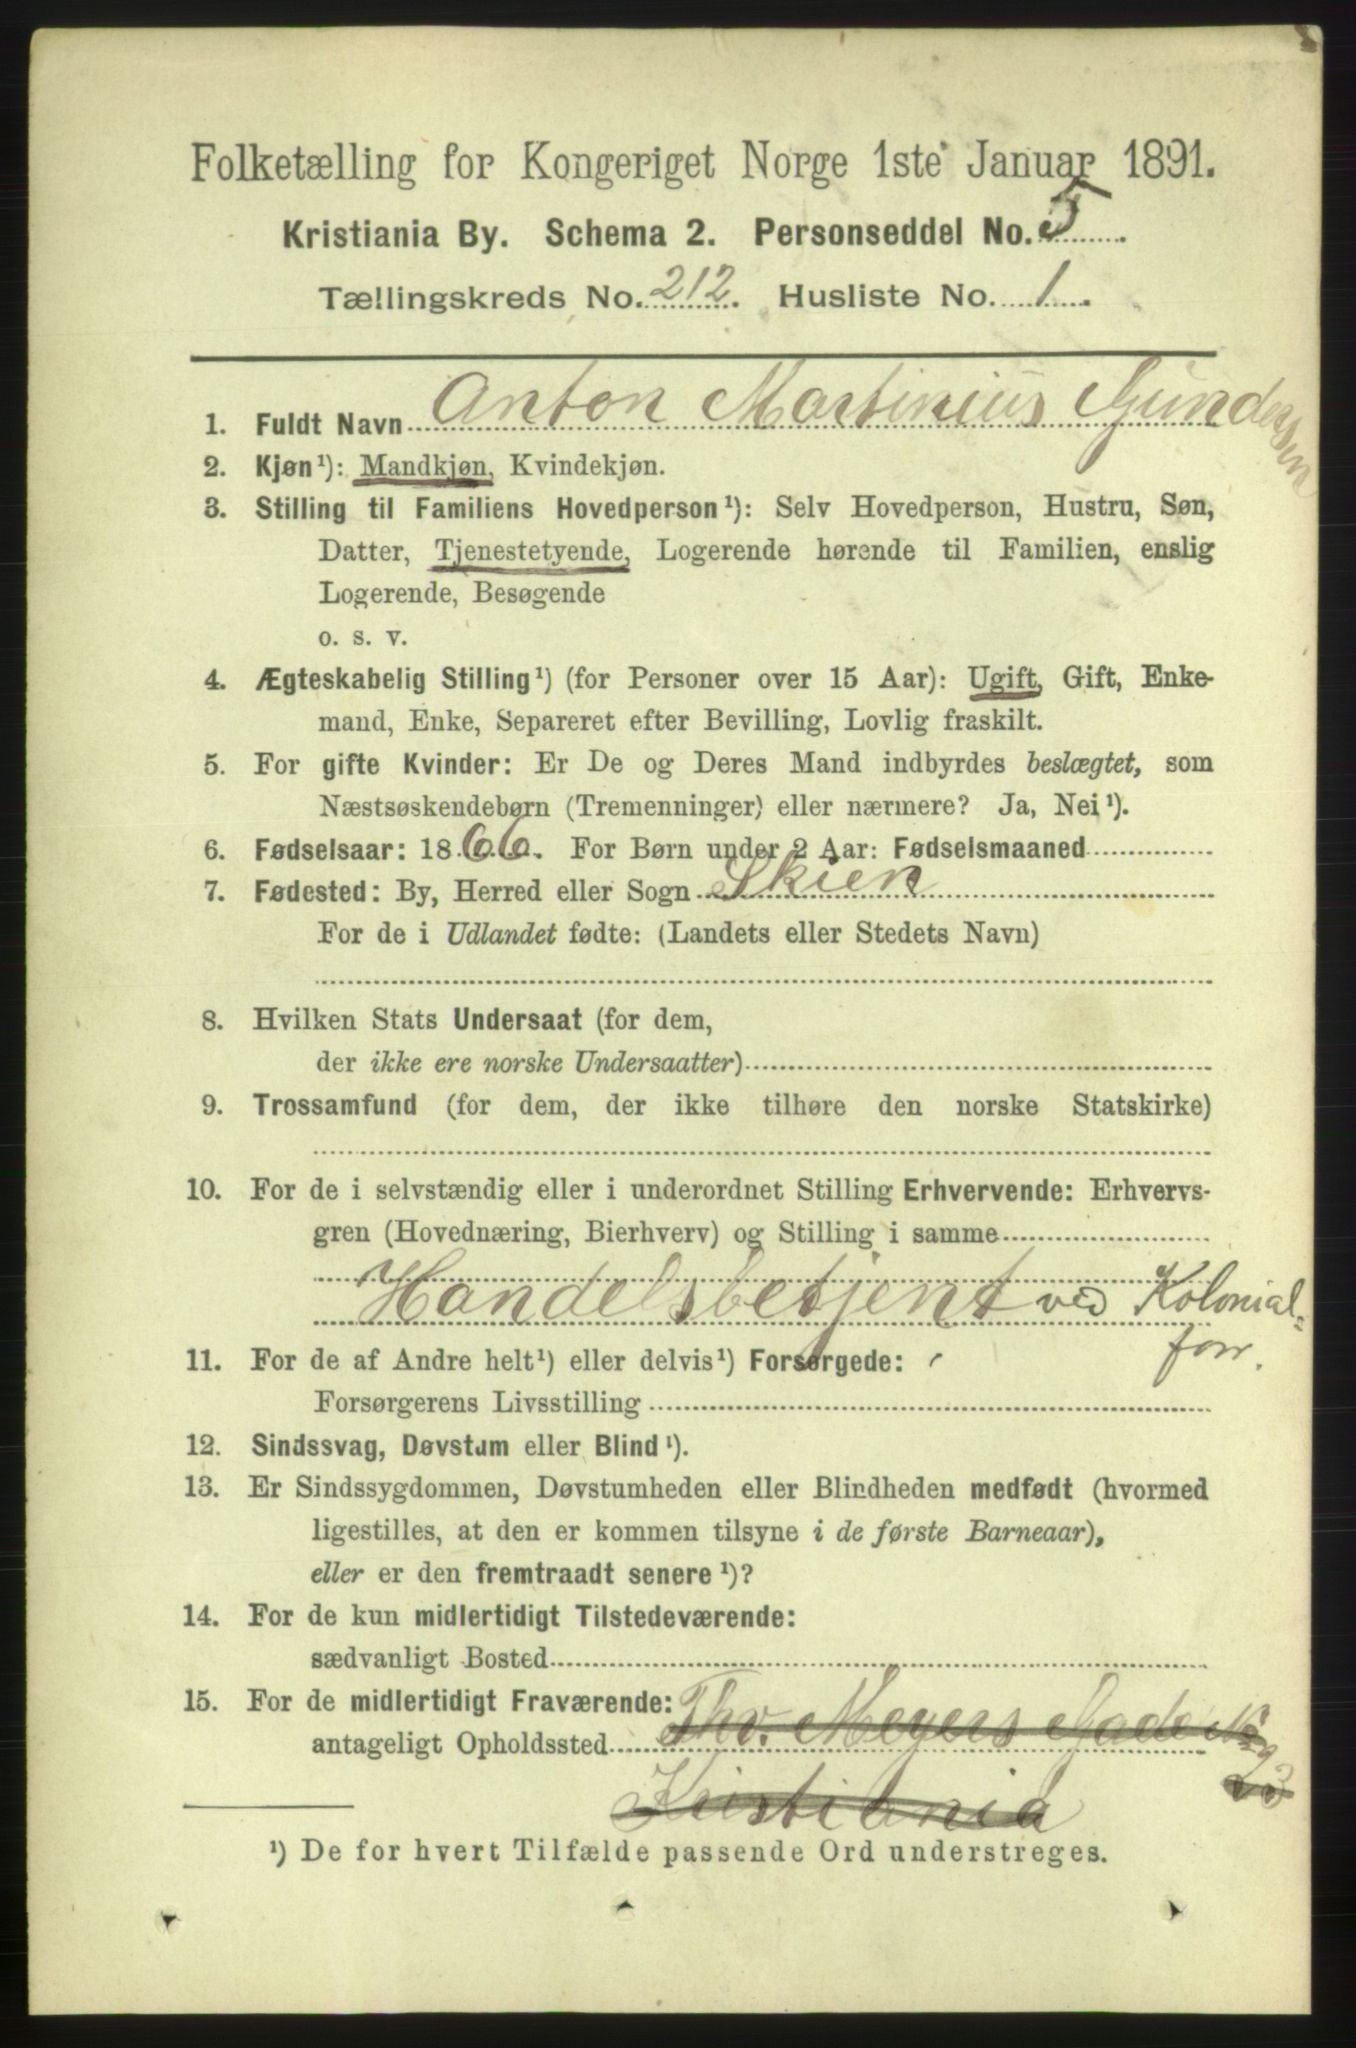 Folketælling for Kongeriget Norge 1ste Januar 1891.
Kristiania By. Schema 2. Personseddel No. 5
Tællingskreds No. 212. Husliste No. 1.
1. Fuldt Navn Anton Martinius Gundersen
2. Kjøn¹): Mandkjøn, Kvindekjøn.
3. Stilling til Familiens Hovedperson¹): Selv Hovedperson, Hustru, Søn,
Datter, Tjenestetyende, Logerende hørende til Familien, enslig
Logerende, Besøgende
o. s. v.
4. Ægteskabelig Stilling¹) (for Personer over 15 Aar): Ugift, Gift, Enke-
mand, Enke, Separeret efter Bevilling, Lovlig fraskilt.
5. For gifte Kvinder: Er De og Deres Mand indbyrdes beslægtet, som
Næstsøskendebørn (Tremenninger) eller nærmere? Ja, Nei¹).
6. Fødselsaar: 1866. For Børn under 2 Aar: Fødselsmaaned
7. Fødested: By, Herred eller Sogn Skien
For de i Udlandet fødte: (Landets eller Stedets Navn)
8. Hvilken Stats Undersaat (for dem,
der ikke ere norske Undersaatter)
9. Trossamfund (for dem, der ikke tilhøre den norske Statskirke)
10. For de i selvstændig eller i underordnet Stilling Erhvervende: Erhvervs-
gren (Hovednæring, Bierhverv) og Stilling i samme
Handelsbetjent ved Kolonial=
forr.
11. For de af Andre helt¹) eller delvis¹) Forsørgede:
Forsørgerens Livsstilling
12. Sindssvag, Døvstum eller Blind¹).
13. Er Sindssygdommen, Døvstumheden eller Blindheden medfødt (hvormed
ligestilles, at den er kommen tilsyne i de første Barneaar),
eller er den fremtraadt senere¹)?
14. For de kun midlertidigt Tilstedeværende:
sædvanligt Bosted
15. For de midlertidigt Fraværende: Thv. Meyers Gade No
antageligt Opholdssted 23
Kristiania
¹) De for hvert Tilfælde passende Ord understreges.